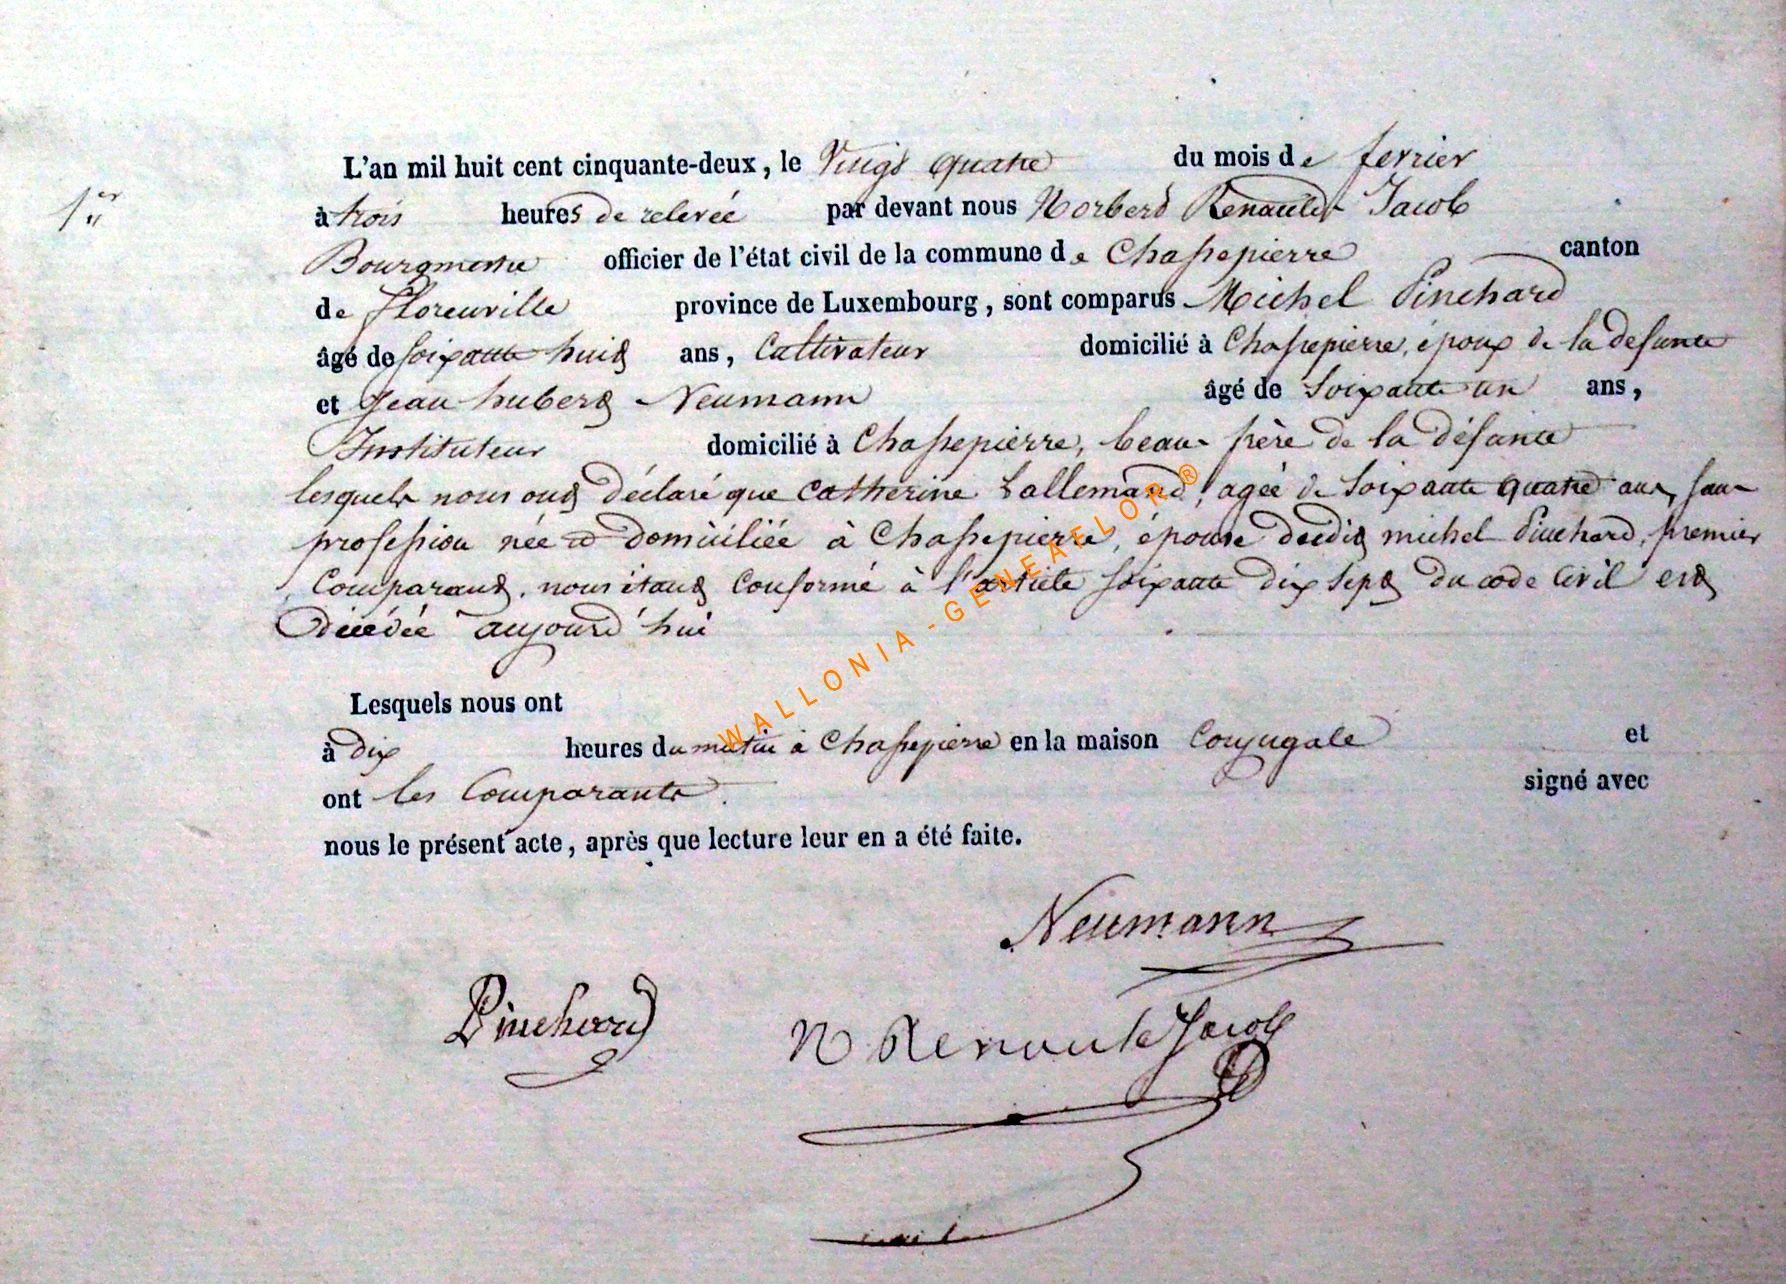 L'an mil huit cent cinquante-deux, le Vingt quatre du mois de fevrier
1er
à trois heures de relevée par devant nous Norbert Renauld Jacob
Bourgmestre officier de l'état civil de la commune de Chassepierre canton
de Florenville province de Luxembourg, sont comparus Michel Pinchard
âgé de soixante huit ans, Cultivateur domicilié à Chassepierre, époux de la défunte
et Jean hubert Neumann âgé de Soixante un ans,
Instituteur domicilié à Chassepierre, beau frère de la défunte
lesquels nous ont déclaré que Catherine Lallemand, agée de Soixante quatre ans, sans
profession née et domiciliée à Chassepierre, épouse dudit michel Pinchard, premier
Comparant, nous étant conformé à l'article soixante dix sept du code Civil est
décédée aujourd'hui
Lesquels nous ont
à dix heures du matin à Chassepierre en la maison Conjugale et
ont les Comparants signé avec
nous le présent acte, après que lecture leur en a été faite.
Neumann
Pinchard
N Renauld Jacob
WALLONIA - GENEAFLOR ®